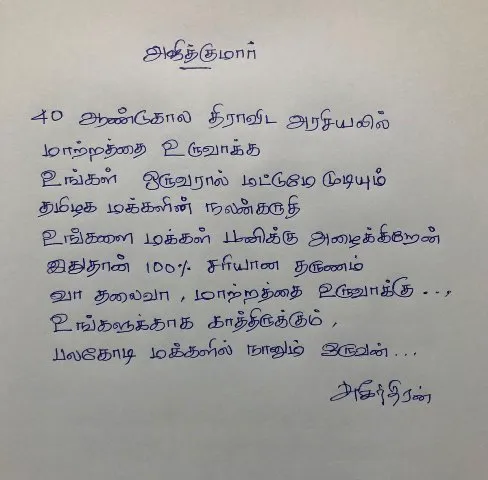 அஜித்குமார்
40 ஆண்டுகால திராவிட அரசியலில்
மாற்றத்தை உருவாக்க
உங்கள் ஒருவரால் மட்டுமே முடியும்
தமிழக மக்களின் நலன்கருதி
உங்களை மக்கள் பணிக்கு அழைக்கிறேன்
இதுதான் 100% சரியான தருணம்
வா தலைவா , மாற்றத்தை உருவாக்கு ...,
உங்களுக்காக காத்திருக்கும் ,
பலகோடி மக்களில் நானும் ஒருவன் ...
சுசீந்திரன்